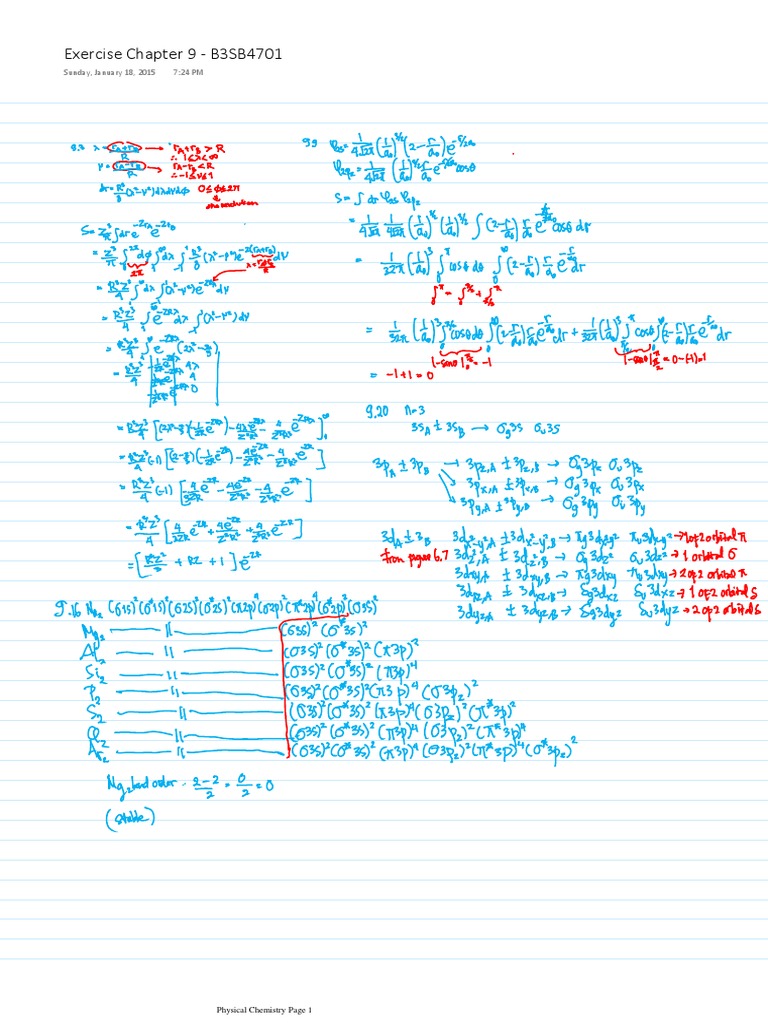 Exercise Chapter 9 - B3SB4701
Sunday, January 18, 2015 7:24 PM
9.3 λ = (r_A+r_B)/R → r_A+r_B > R
∴ 1≤λ<∞
ν = (r_A-r_B)/R → r_A-r_B < R
∴ -1≤ν≤1
dr = R³/8 (λ²-ν²)dλdνdϕ 0≤ϕ≤2π
S = Z³/π ∫dr e^(-Zr_A) e^(-Zr_B)
= Z³/π ∫₀^2π dϕ ∫₁^∞ dλ ∫₋₁^1 R³/8 (λ²-ν²) e^(-Z(r_A+r_B)) dν
2π
= R³Z³/4 ∫₁^∞ dλ ∫(λ²-ν²) e^(-ZRλ) dν
= R³Z³/4 ∫₁^∞ e^(-ZRλ) dλ ∫(λ²-ν²) dν
= R³Z³/4 ∫ e^(-ZRλ) (2λ²-2/3)
= R³Z³/4
4λ
4
0
= R³Z³/4 [(2λ²-2/3)(-1/ZR e^(-ZRλ)) - 4λ/Z²R² e^(-ZRλ) - 4/Z³R³ e^(-ZRλ)]
= R³Z³/4 (-1) [(2-2/3)(-1/ZR e^(-ZR)) - 4/Z²R² e^(-ZR) - 4/Z³R³ e^(-ZR)]
= R³Z³/4 (-1) [-4/3ZR e^(-ZR) - 4/Z²R² e^(-ZR) - 4/Z³R³ e^(-ZR)]
= R³Z³/4 [4/3ZR e^(-ZR) + 4/Z²R² e^(-ZR) + 4/Z³R³ e^(-ZR)]
= [R²Z²/3 + RZ + 1] e^(-ZR)
9.9 φ2s = 1/(4√2π) (1/a₀)^(3/2) (2-r/a₀) e^(-r/2a₀)
φ2pz = 1/(4√2π) (1/a₀)^(3/2) r/a₀ e^(-r/2a₀) cosθ
S = ∫ dr φ2s φ2pz
= 1/(4√2π) 1/(4√2π) (1/a₀)^(3/2) (1/a₀)^(3/2) ∫ (2-r/a₀) r/a₀ e^(-r/a₀) cosθ dr
= 1/32π (1/a₀)³ ∫₀^π cosθ dθ ∫₀^∞ (2-r/a₀) r/a₀ e^(-r/a₀) dr
∫₀^π = ∫₀^(π/2) + ∫_(π/2)^π
= 1/32π (1/a₀)³ ∫₀^(π/2) cosθ dθ ∫₀^∞ (2-r/a₀) r/a₀ e^(-r/a₀) dr + 1/32π (1/a₀)³ ∫_(π/2)^π cosθ ∫₀^∞ (2-r/a₀) r/a₀ e^(-r/a₀) dr
|-sinθ|₀^(π/2) = -1 |-sinθ|_(π/2)^π = 0-(-1)=1
= -1+1 = 0
9.20 n=3
3s_A ± 3s_B → σg3s σu3s
3p_A ± 3p_B → 3pz,A ± 3pz,B → σg3pz σu3pz
→ 3px,A ± 3px,B → σg3px σu3px
3py,A ± 3py,B → σg3py σu3py
3d_A ± 3_B 3dx²-y²,A ± 3dx²-y²,B → πg3dx²y² πu3dx²y² → 1 of 2 orbital π
from figure 6.7 3dz²,A ± 3dz²,B → σg3dz² σu3dz² → 1 orbital σ
3dxy,A ± 3dxy,B → πg3dxy πu3dxy → 2 of 2 orbital π
3dxz,A ± 3dxz,B → δg3dxz δu3dxz → 1 of 2 orbital δ
3dyz,A ± 3dyz,B → δg3dyz δu3dyz → 2 of 2 orbital δ
9.16 Na₂ (σ1s)²(σ*1s)²(σ2s)²(σ*2s)²(π2p)⁴(σ2p)²(π*2p)⁴(σ*2p)²(σ3s)²
Mg₂ — 〃 — (σ3s)²(σ*3s)²
Al₂ — 〃 — (σ3s)²(σ*3s)²(π3p)²
Si₂ — 〃 — (σ3s)²(σ*3s)²(π3p)⁴
P₂ — 〃 — (σ3s)²(σ*3s)²(π3p)⁴(σ3pz)²
S₂ — 〃 — (σ3s)²(σ*3s)²(π3p)⁴(σ3pz)²(π*3p)²
Cl₂ — 〃 — (σ3s)²(σ*3s)²(π3p)⁴(σ3pz)²(π*3p)⁴
Ar₂ — 〃 — (σ3s)²(σ*3s)²(π3p)⁴(σ3pz)²(π*3p)⁴(σ*3pz)²
Mg₂ bond order = (2-2)/2 = 0/2 = 0
(stable)
Physical Chemistry Page 1